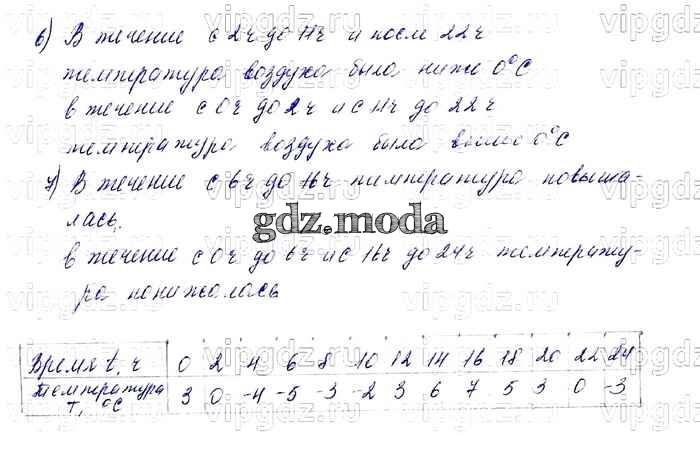 6) В течение с 2ч до 11ч и после 22ч
температура воздуха была ниже 0°С
в течение с 0ч до 2ч и с 11ч до 22ч
температура воздуха была выше 0°С
7) В течение с 6ч до 16ч температура повыша-
лась,
gdz.moda
в течение с 0ч до 6ч и с 16ч до 24ч температу-
ра понижалась
Время t, ч 0 2 4 6 8 10 12 14 16 18 20 22 24
Температура Т, °С 3 0 -4 -5 -3 -2 3 6 7 5 3 0 -3